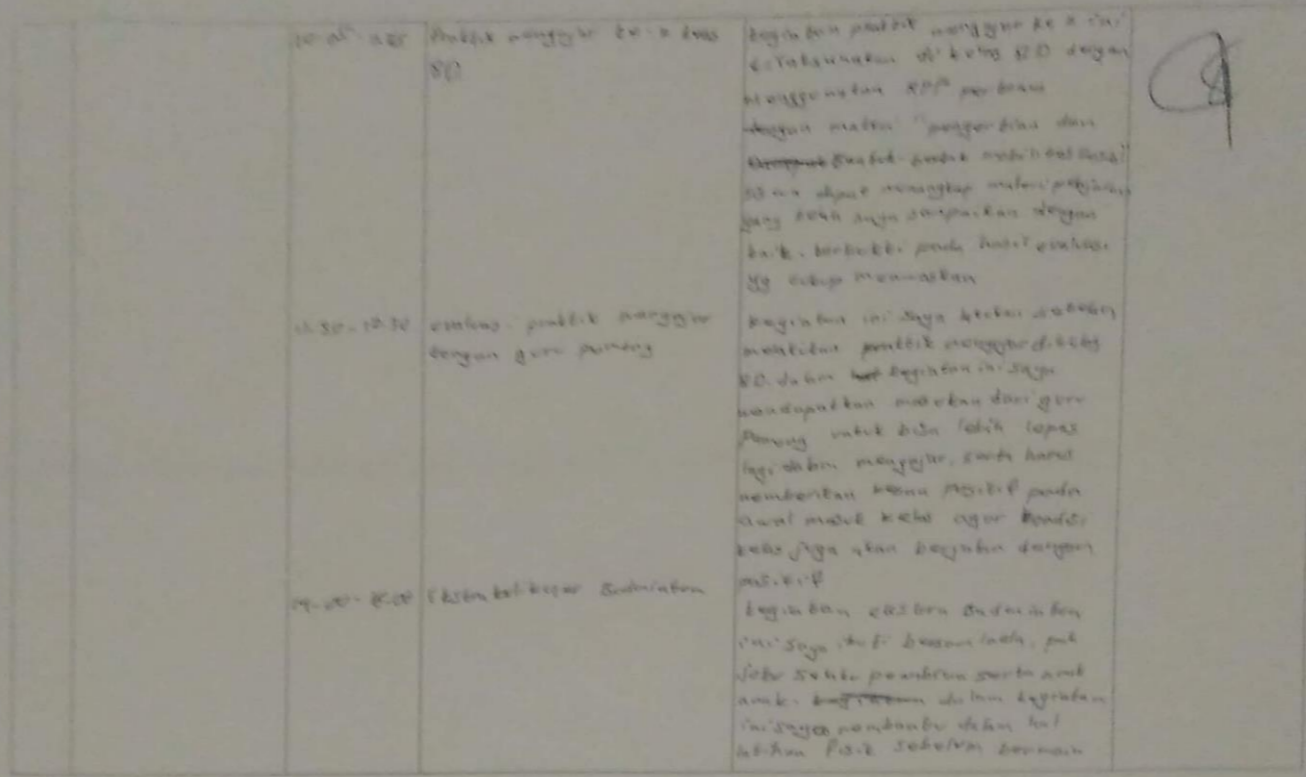 Praktik mengajar ke
8D
kegiatan praktik mengajar ke ini
dilaksanakan di kelas 8D dengan
menggunakan RPP
dengan materi "pengertian dan
bentuk-bentuk mobilitas sosial
siswa dapat menangkap materi pelajaran
yang saya sampaikan dengan
baik. terbukti pada hasil evaluasi
yg cukup memuaskan
evaluasi praktik mengajar
dengan guru pamong
kegiatan ini saya setelah
praktik mengajar di kelas
8D. dalam kegiatan ini saya
mendapatkan masukan dari guru
pamong untuk bisa lebih lepas
lagi dalam mengajar, serta harus
memberikan kesan positif pada
awal masuk kelas agar kondisi
kelas juga akan berjalan dengan
positif
Ekstrakulikuler Badminton
kegiatan ekstra Badminton
ini saya ikuti bersama pak
pembina serta anak
anak. dalam kegiatan
ini saya membantu dalam hal
latihan fisik sebelum bermain